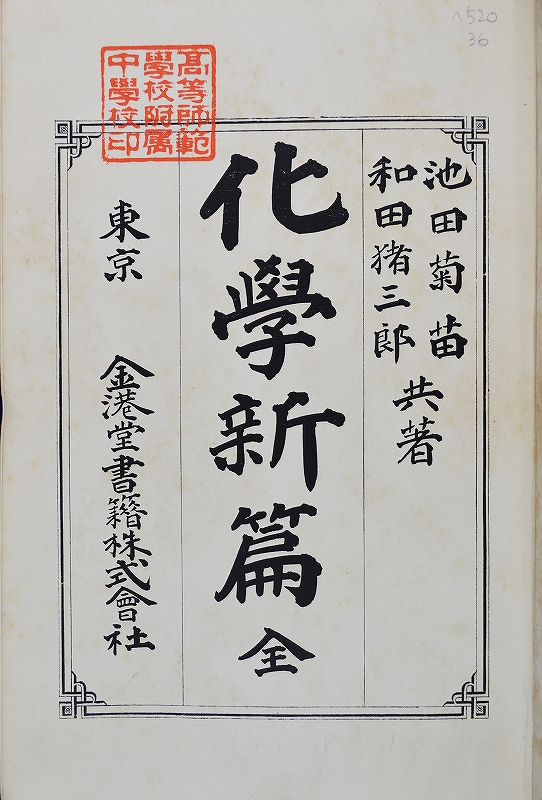 ヘ520
36
高等師範
學校附属
中學校印
池田菊苗
和田猪三郎
共著
化學新篇 全
東京 金港堂書籍株式會社